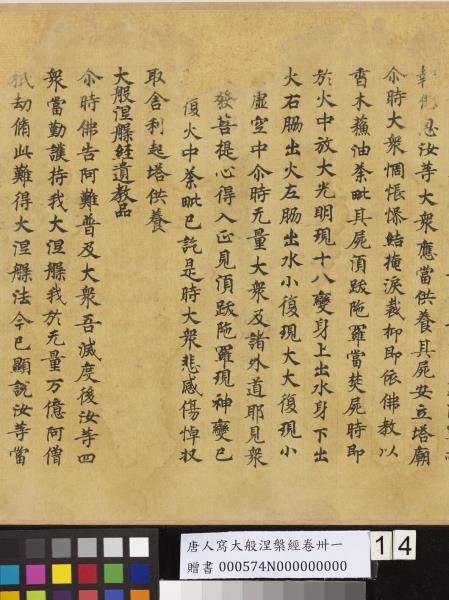 報佛恩汝等大衆應當供養其屍安立塔廟
尒時大衆惆悵慘結掩淚裁抑即依佛教以
香木蘓油荼毗其屍湏跋陁羅當焚屍時即
於火中放大光明現十八變身上出水身下出
火右脇出火左脇出水小復現大大復現小
虛空中尒時无量大衆及諸外道耶見衆
發菩提心得入正見湏跋陁羅現神變已
復火中荼毗已訖是時大衆悲感傷悼収
取舍利起塔供養
大般涅槃経遺教品
尒時佛告阿難普及大衆吾滅度後汝等四
衆當勤護持我大涅槃我於无量万億阿僧
祇劫脩此難得大涅槃法今已顯說汝等當
唐人寫大般涅槃經卷卅一
贈書 000574N000000000
14